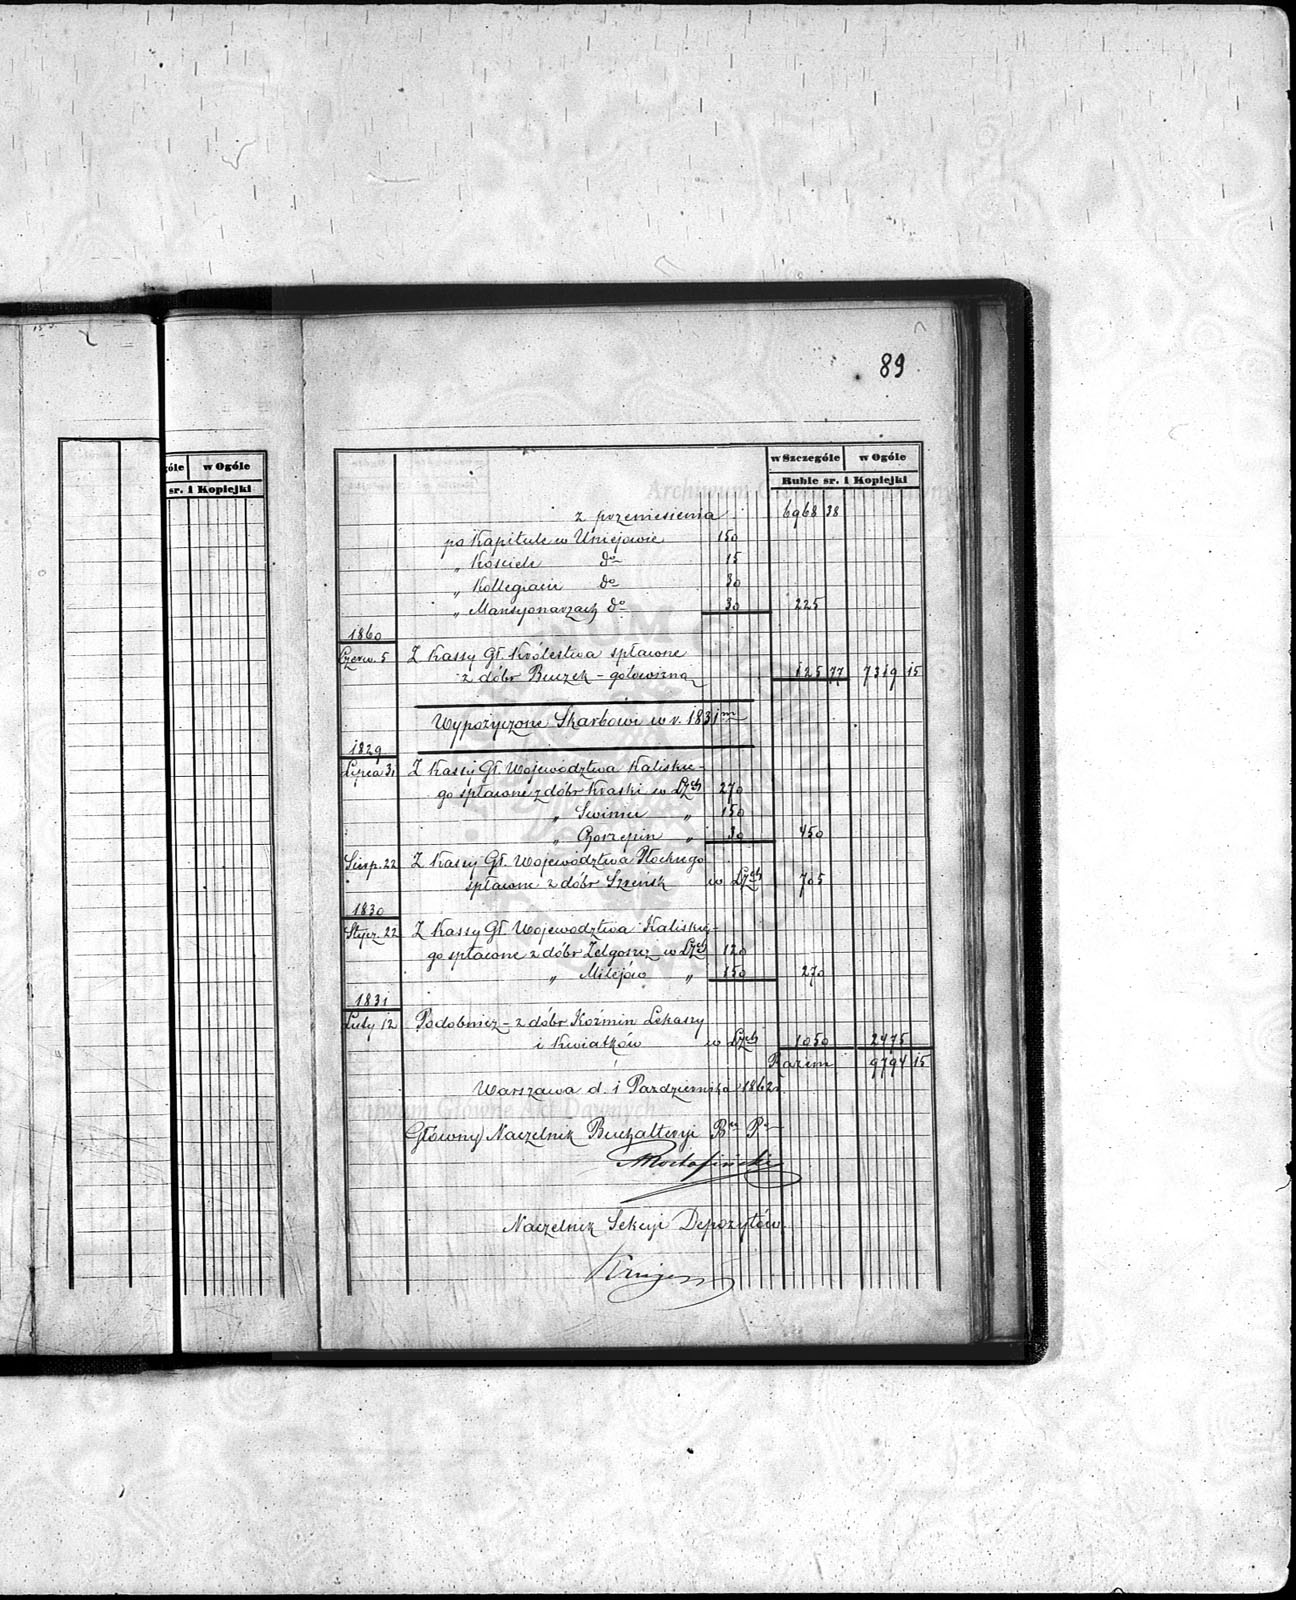 89
góle w Ogóle
sr. i Kopiejki
w Szczególe w Ogóle
Ruble sr. i Kopiejki
Archiwum Główne Akt Dawnych
z przeniesienia 6968 38
po Kapitule w Uniejowie 150
" Kościele do 15
" Kollegiacie do 30
" Mansyonarzach do 30 225
1860
Czerw. 5 Z Kassy Gł. Królestwa spłacone
z dóbr Buczek - gotowizną 125 77 7319 15
Wypożyczone Skarbowi w r. 1831m
1829
Lipca 31 Z Kassy Gł. Województwa Kaliskie-
go spłacone z dóbr Kraski w Lzch 270
" Swinice " 150
" Chorzepin " 30 450
Sierp. 22 Z Kassy Gł. Województwa Płockiego
spłacone z dóbr Szreńsk w Lzch 705
1830
Stycz. 22 Z Kassy Gł. Województwa Kaliskie-
go spłacone z dóbr Zelgoszcz w Lzch 120
" Milejów " 150 270
1831
Luty 12 Podobnież - z dóbr Koźmin Lekaszy
i Kwiatków w Lzch 1050 2475
Razem 9794 15
Warszawa d. 1 Pazdziernika 1862 r.
Archiwum Główne Akt Dawnych
Główny Naczelnik Buchalteryi
Naczelnik Sekcyi Depozytów